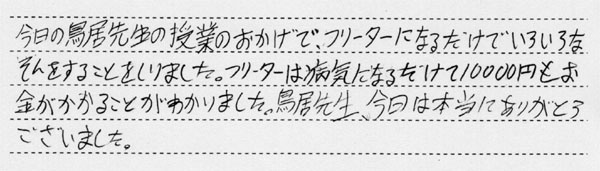 今日の鳥居先生の授業のおかげで、フリーターになるだけでいろいろな
そんをすることをしりました。フリーターは病気になるだけで10000円もお
金がかかることがわかりました。鳥居先生、今日は本当にありがとう
ございました。